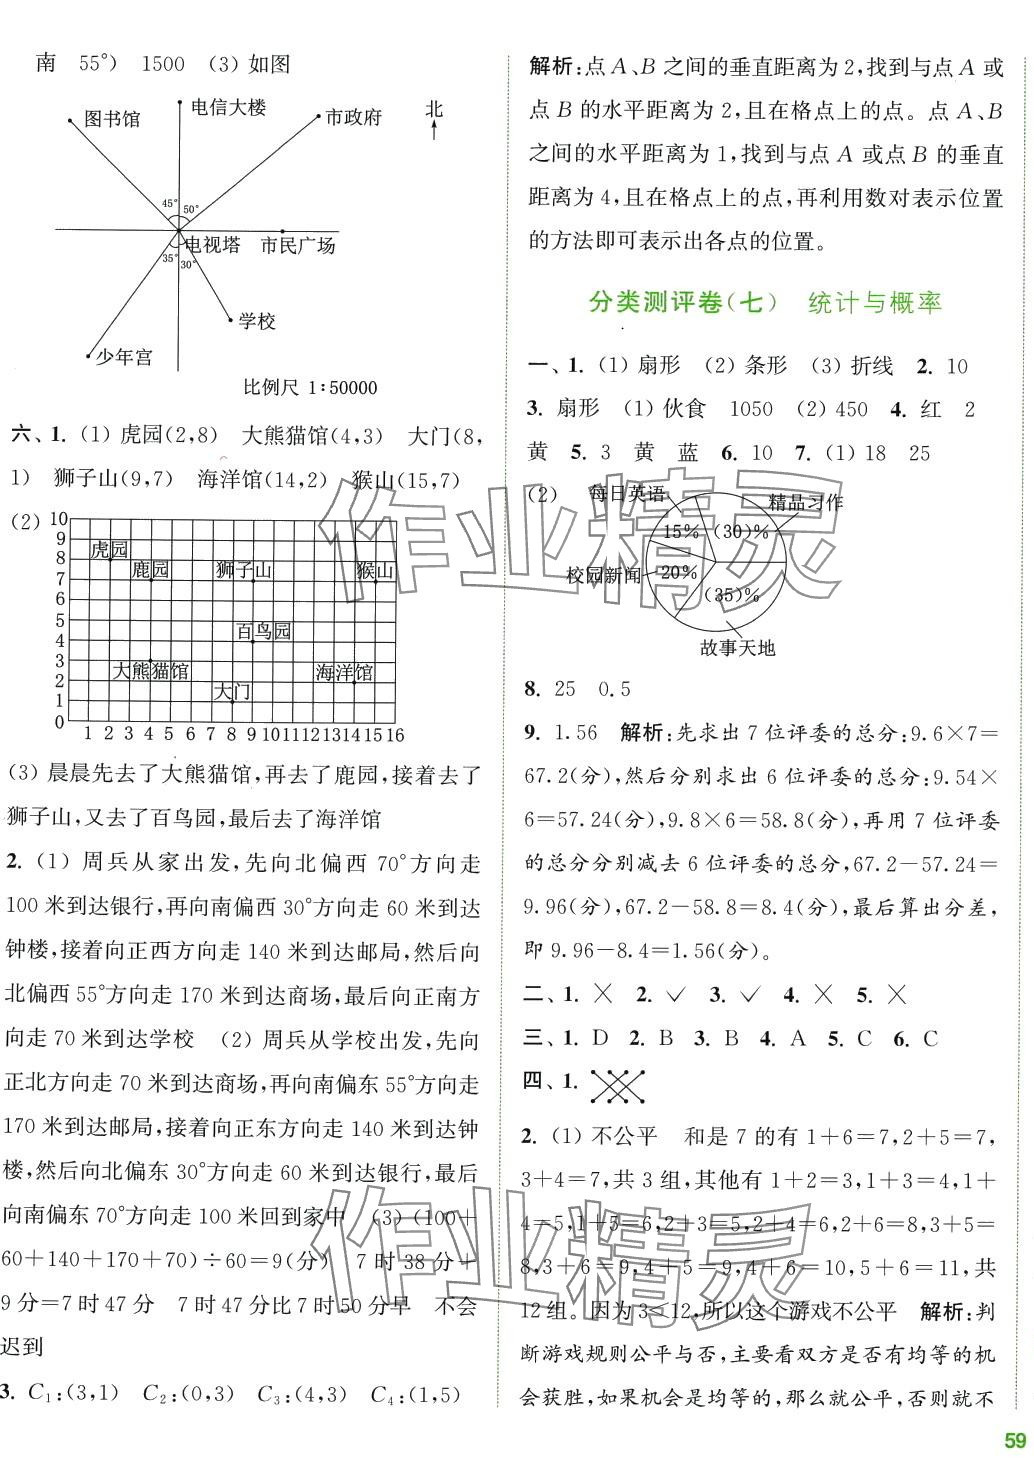 南　55°)　1500　(3)如图
图书馆
电信大楼
市政府
北
45°
50°
电视塔
市民广场
35°
30°
学校
少年宫
比例尺 1:50000
六、1. (1)虎园(2,8)　大熊猫馆(4,3)　大门(8,
1)　狮子山(9,7)　海洋馆(14,2)　猴山(15,7)
(2)
10
9
8
7
6
5
4
3
2
1
0
虎园
鹿园
狮子山
猴山
百鸟园
大熊猫馆
海洋馆
大门
1 2 3 4 5 6 7 8 9 10 11 12 13 14 15 16
(3)晨晨先去了大熊猫馆,再去了鹿园,接着去了
狮子山,又去了百鸟园,最后去了海洋馆
2. (1)周兵从家出发,先向北偏西 70°方向走
100 米到达银行,再向南偏西 30°方向走 60 米到达
钟楼,接着向正西方向走 140 米到达邮局,然后向
北偏西 55°方向走 170 米到达商场,最后向正南方
向走 70 米到达学校　(2)周兵从学校出发,先向
正北方向走 70 米到达商场,再向南偏东 55°方向走
170 米到达邮局,接着向正东方向走 140 米到达钟
楼,然后向北偏东 30°方向走 60 米到达银行,最后
向南偏东 70°方向走 100 米回到家中　(3)(100+
60+140+170+70)÷60=9(分)　7 时 38 分+
9 分=7 时 47 分　7 时 47 分比 7 时 50 分早　不会
迟到
3. C₁:(3,1)　C₂:(0,3)　C₃:(4,3)　C₄:(1,5)
解析:点 A、B 之间的垂直距离为 2,找到与点 A 或
点 B 的水平距离为 2,且在格点上的点。点 A、B
之间的水平距离为 1,找到与点 A 或点 B 的垂直
距离为 4,且在格点上的点,再利用数对表示位置
的方法即可表示出各点的位置。
分类测评卷(七)　统计与概率
一、1. (1)扇形　(2)条形　(3)折线　2. 10
3. 扇形　(1)伙食　1050　(2)450　4. 红　2
黄　5. 3　黄　蓝　6. 10　7. (1)18　25
(2)
每日英语
精品习作
15%
(30)%
校园新闻
20%
(35)%
故事天地
8. 25　0.5
9. 1.56　解析:先求出 7 位评委的总分:9.6×7=
67.2(分),然后分别求出 6 位评委的总分:9.54×
6=57.24(分),9.8×6=58.8(分),再用 7 位评委
的总分分别减去 6 位评委的总分,67.2−57.24=
9.96(分),67.2−58.8=8.4(分),最后算出分差,
即 9.96−8.4=1.56(分)。
二、1. ×　2. ✓　3. ✓　4. ×　5. ×
三、1. D　2. B　3. B　4. A　5. C　6. C
四、1.
2. (1)不公平　和是 7 的有 1+6=7,2+5=7,
3+4=7,共 3 组,其他有 1+2=3,1+3=4,1+
4=5,1+5=6,2+3=5,2+4=6,2+6=8,3+5=
8,3+6=9,4+5=9,4+6=10,5+6=11,共
12 组。因为 3<12,所以这个游戏不公平　解析:判
断游戏规则公平与否,主要看双方是否有均等的机
会获胜,如果机会是均等的,那么就公平,否则就不
59
作业精灵
作业精灵